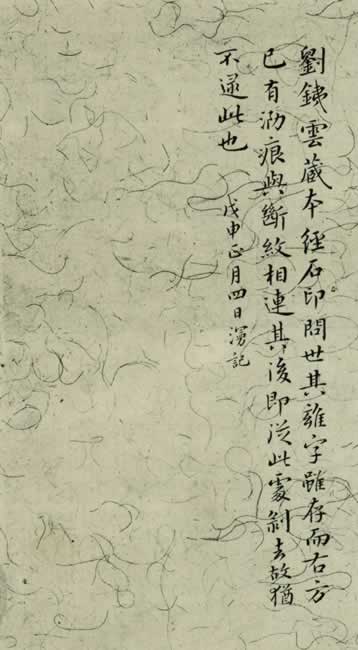 劉銕雲蔵本經石印問世其誰字雖存而右方
已有泐痕與斷紋相連其後即從此處剝去故猶
不逮此也
戊申正月四日漫記